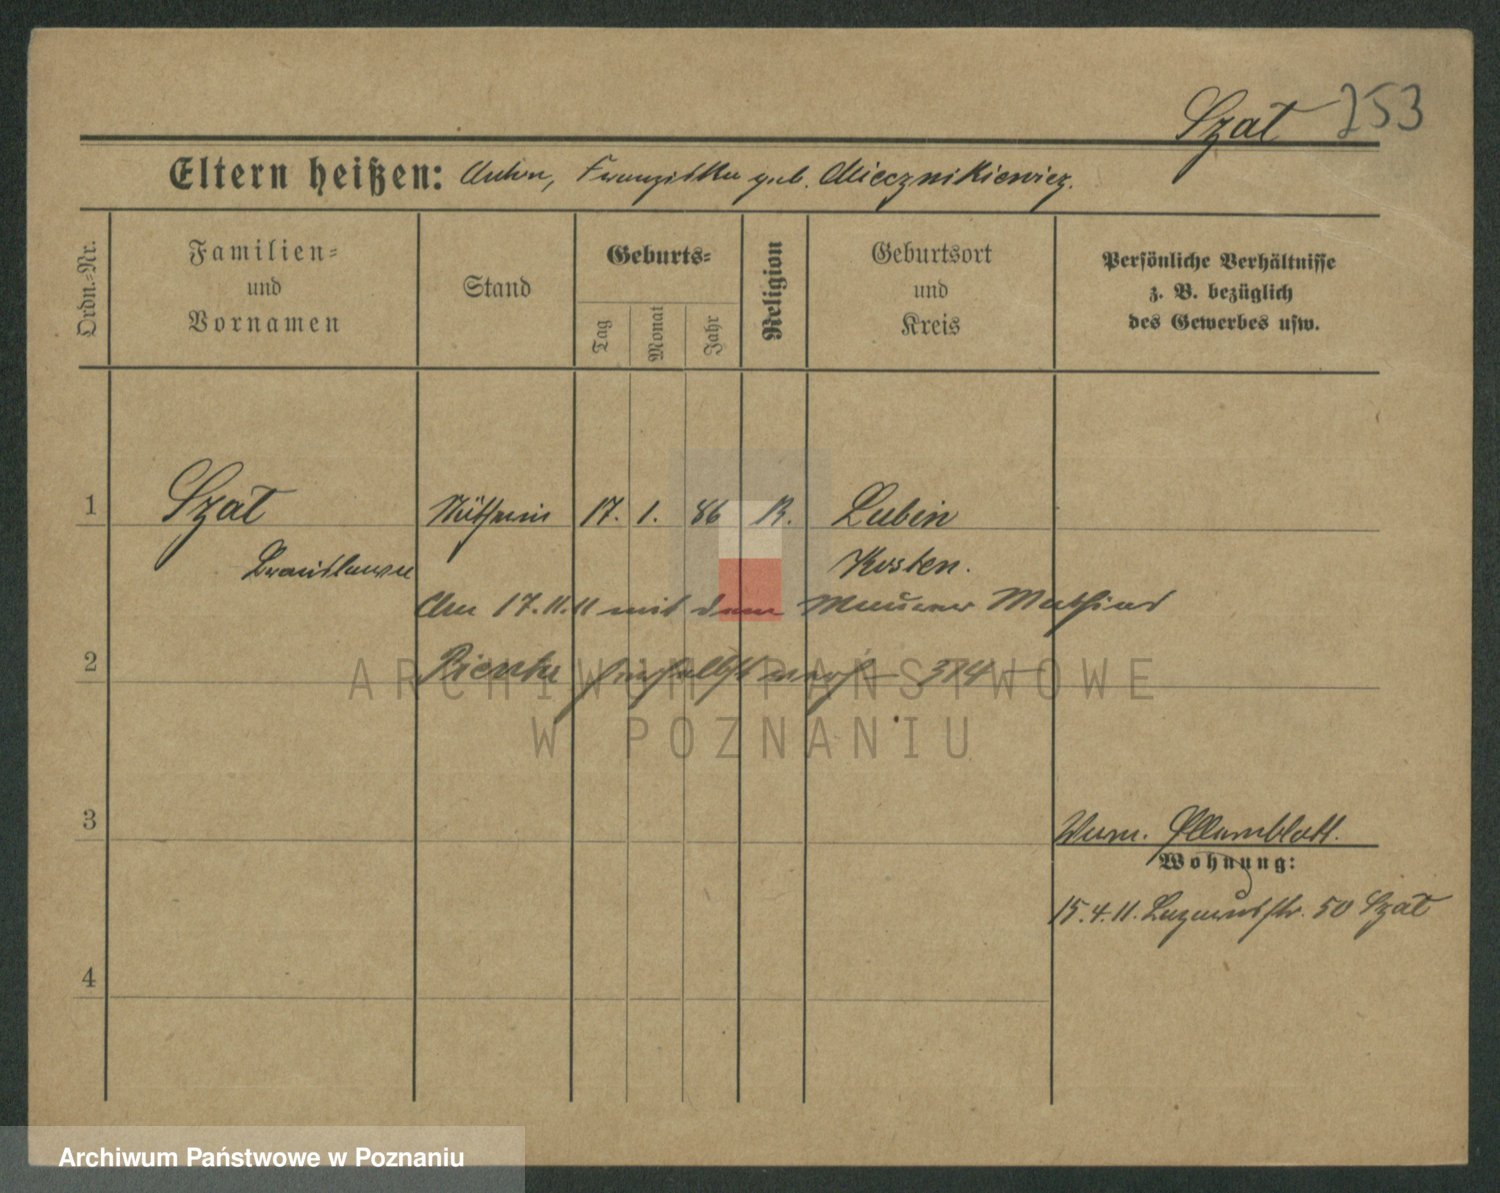 Szat 253
Eltern heißen: Anton, Franziska geb. Miecznikiewicz.
Ordn.-Nr.
Familien-
und
Vornamen
Stand
Geburts-
Tag
Monat
Jahr
Religion
Geburtsort
und
Kreis
Persönliche Verhältnisse
z. B. bezüglich
des Gewerbes usw.
1 Szat Näherin 17. 1. 86 K. Lubin
Bronislawa Kosten.
Am 17.11.11 mit dem Maurer Mathias
2 384
3
Wohnung:
15.4.11. Lazarusstr. 50 Szat
4
ARCHIWUM PAŃSTWOWE
W POZNANIU
Archiwum Państwowe w Poznaniu